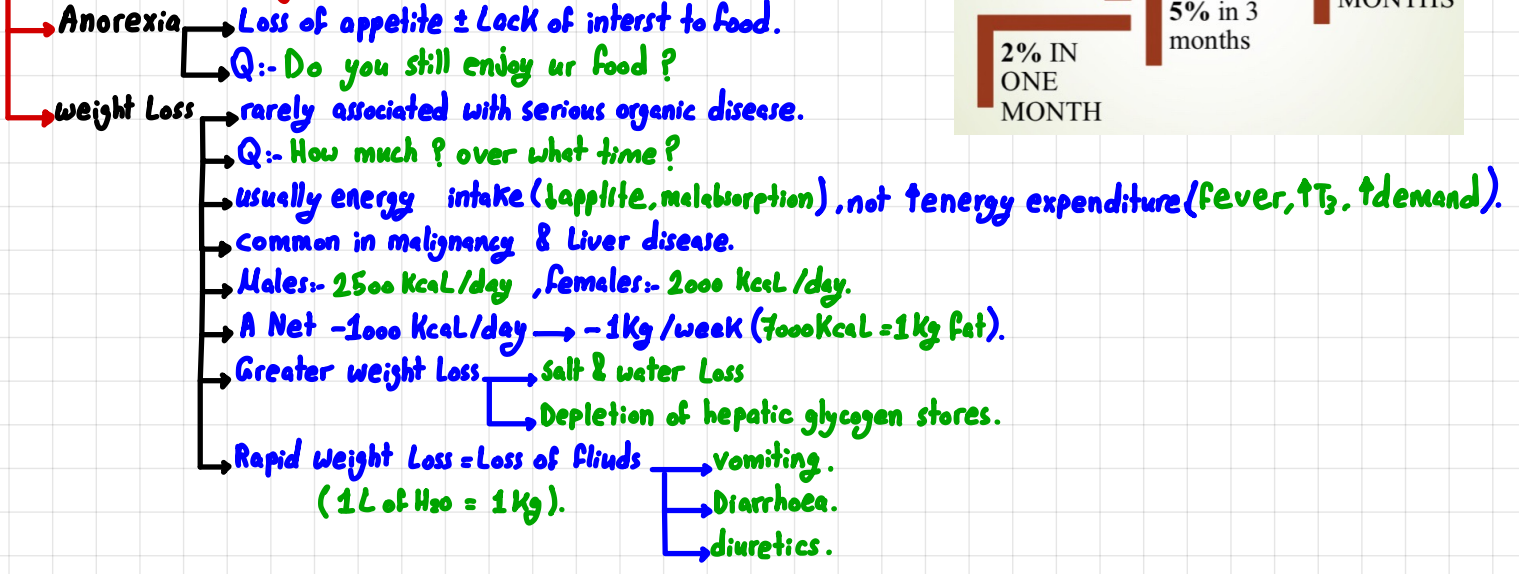 Anorexia
Loss of appetite ± Lack of interst to food.
Q:- Do you still enjoy ur food ?
5% in 3
months
2% IN
ONE
MONTH
MONTHS
weight Loss
rarely associated with serious organic disease.
Q:- How much ? over what time ?
usually energy intake (↓apptite, malabsorption), not ↑energy expenditure (fever, ↑T3, ↑demand).
common in malignancy & Liver disease.
Males:- 2500 KcaL/day , females:- 2000 KcaL/day.
A Net -1000 KcaL/day → -1Kg/week (7000KcaL = 1Kg fat).
Greater weight Loss
salt & water Loss
Depletion of hepatic glycogen stores.
Rapid weight Loss = Loss of fliuds
(1L of H2O = 1Kg).
vomiting.
Diarrhoea.
diuretics.